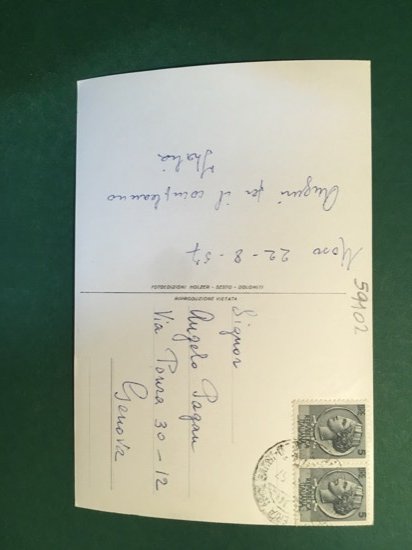 Moso 22-8-57
Auguri per il compleanno
Italia
FOTOEDIZIONI HOLZER - SESTO - DOLOMITI
RIPRODUZIONE VIETATA
59102
Signor
Angelo Pagan
Via Ponza 30-12
Genova
5
5